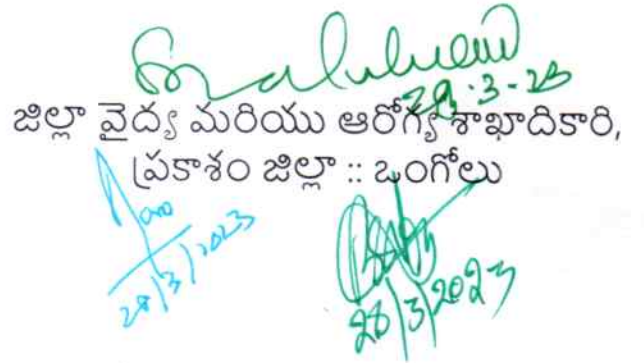 29-3-23
జిల్లా వైద్య మరియు ఆరోగ్య శాఖాదికారి,
ప్రకాశం జిల్లా :: ఒంగోలు
28/3/2023
28/3/2023